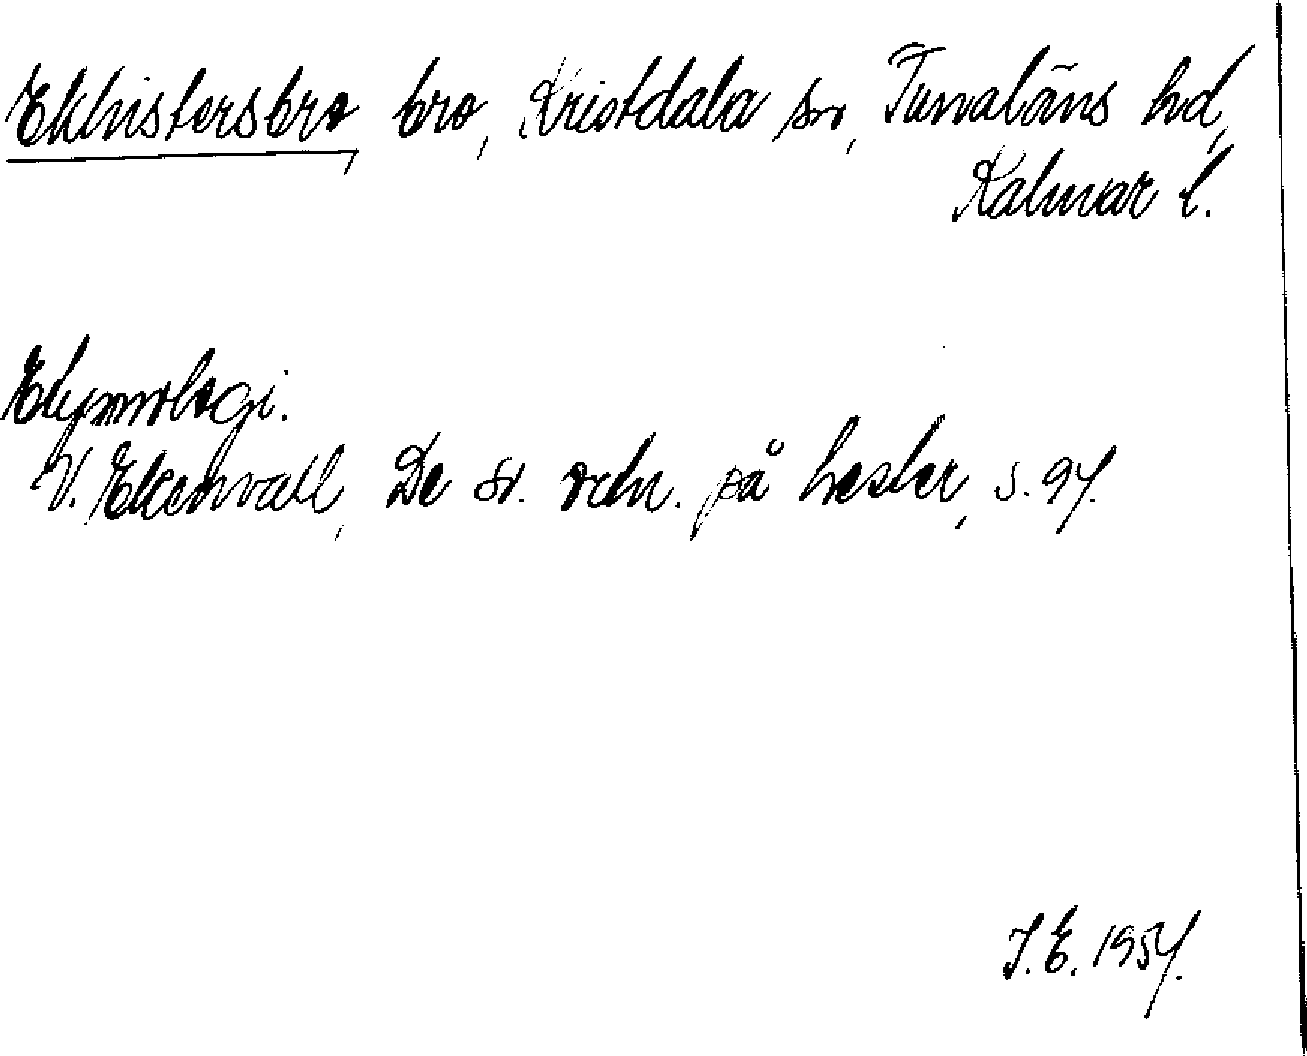 Ekhistersbro, bro, Kristdala sn, Tunaläns hd,
Kalmar l.
Etymologi.
V. Ekenvall, De sv. ortn. på hester, s. 97.
I. E. 1957.